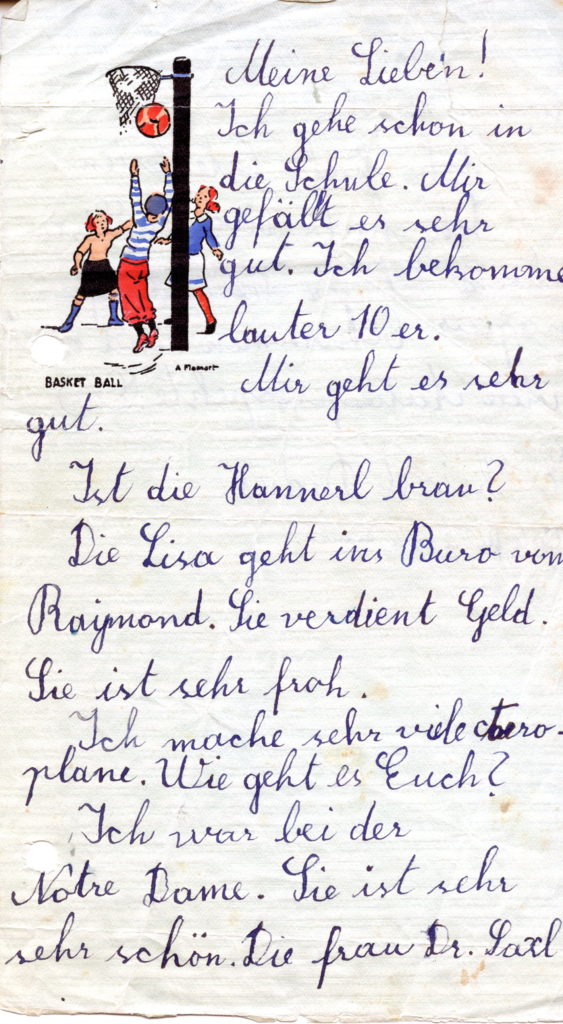 Meine Lieben!
Ich gehe schon in
die Schule. Mir
gefällt es sehr
gut. Ich bekomme
lauter 10er.
BASKET BALL
Mir geht es sehr
gut.
Ist die Hannerl brav?
Die Lisa geht ins Buro vom
Raymond. Sie verdient Geld.
Sie ist sehr froh.
Ich mache sehr viele Aero-
plane. Wie geht es Euch?
Ich war bei der
Notre Dame. Sie ist sehr
sehr schön. Die frau Dr. Saxl